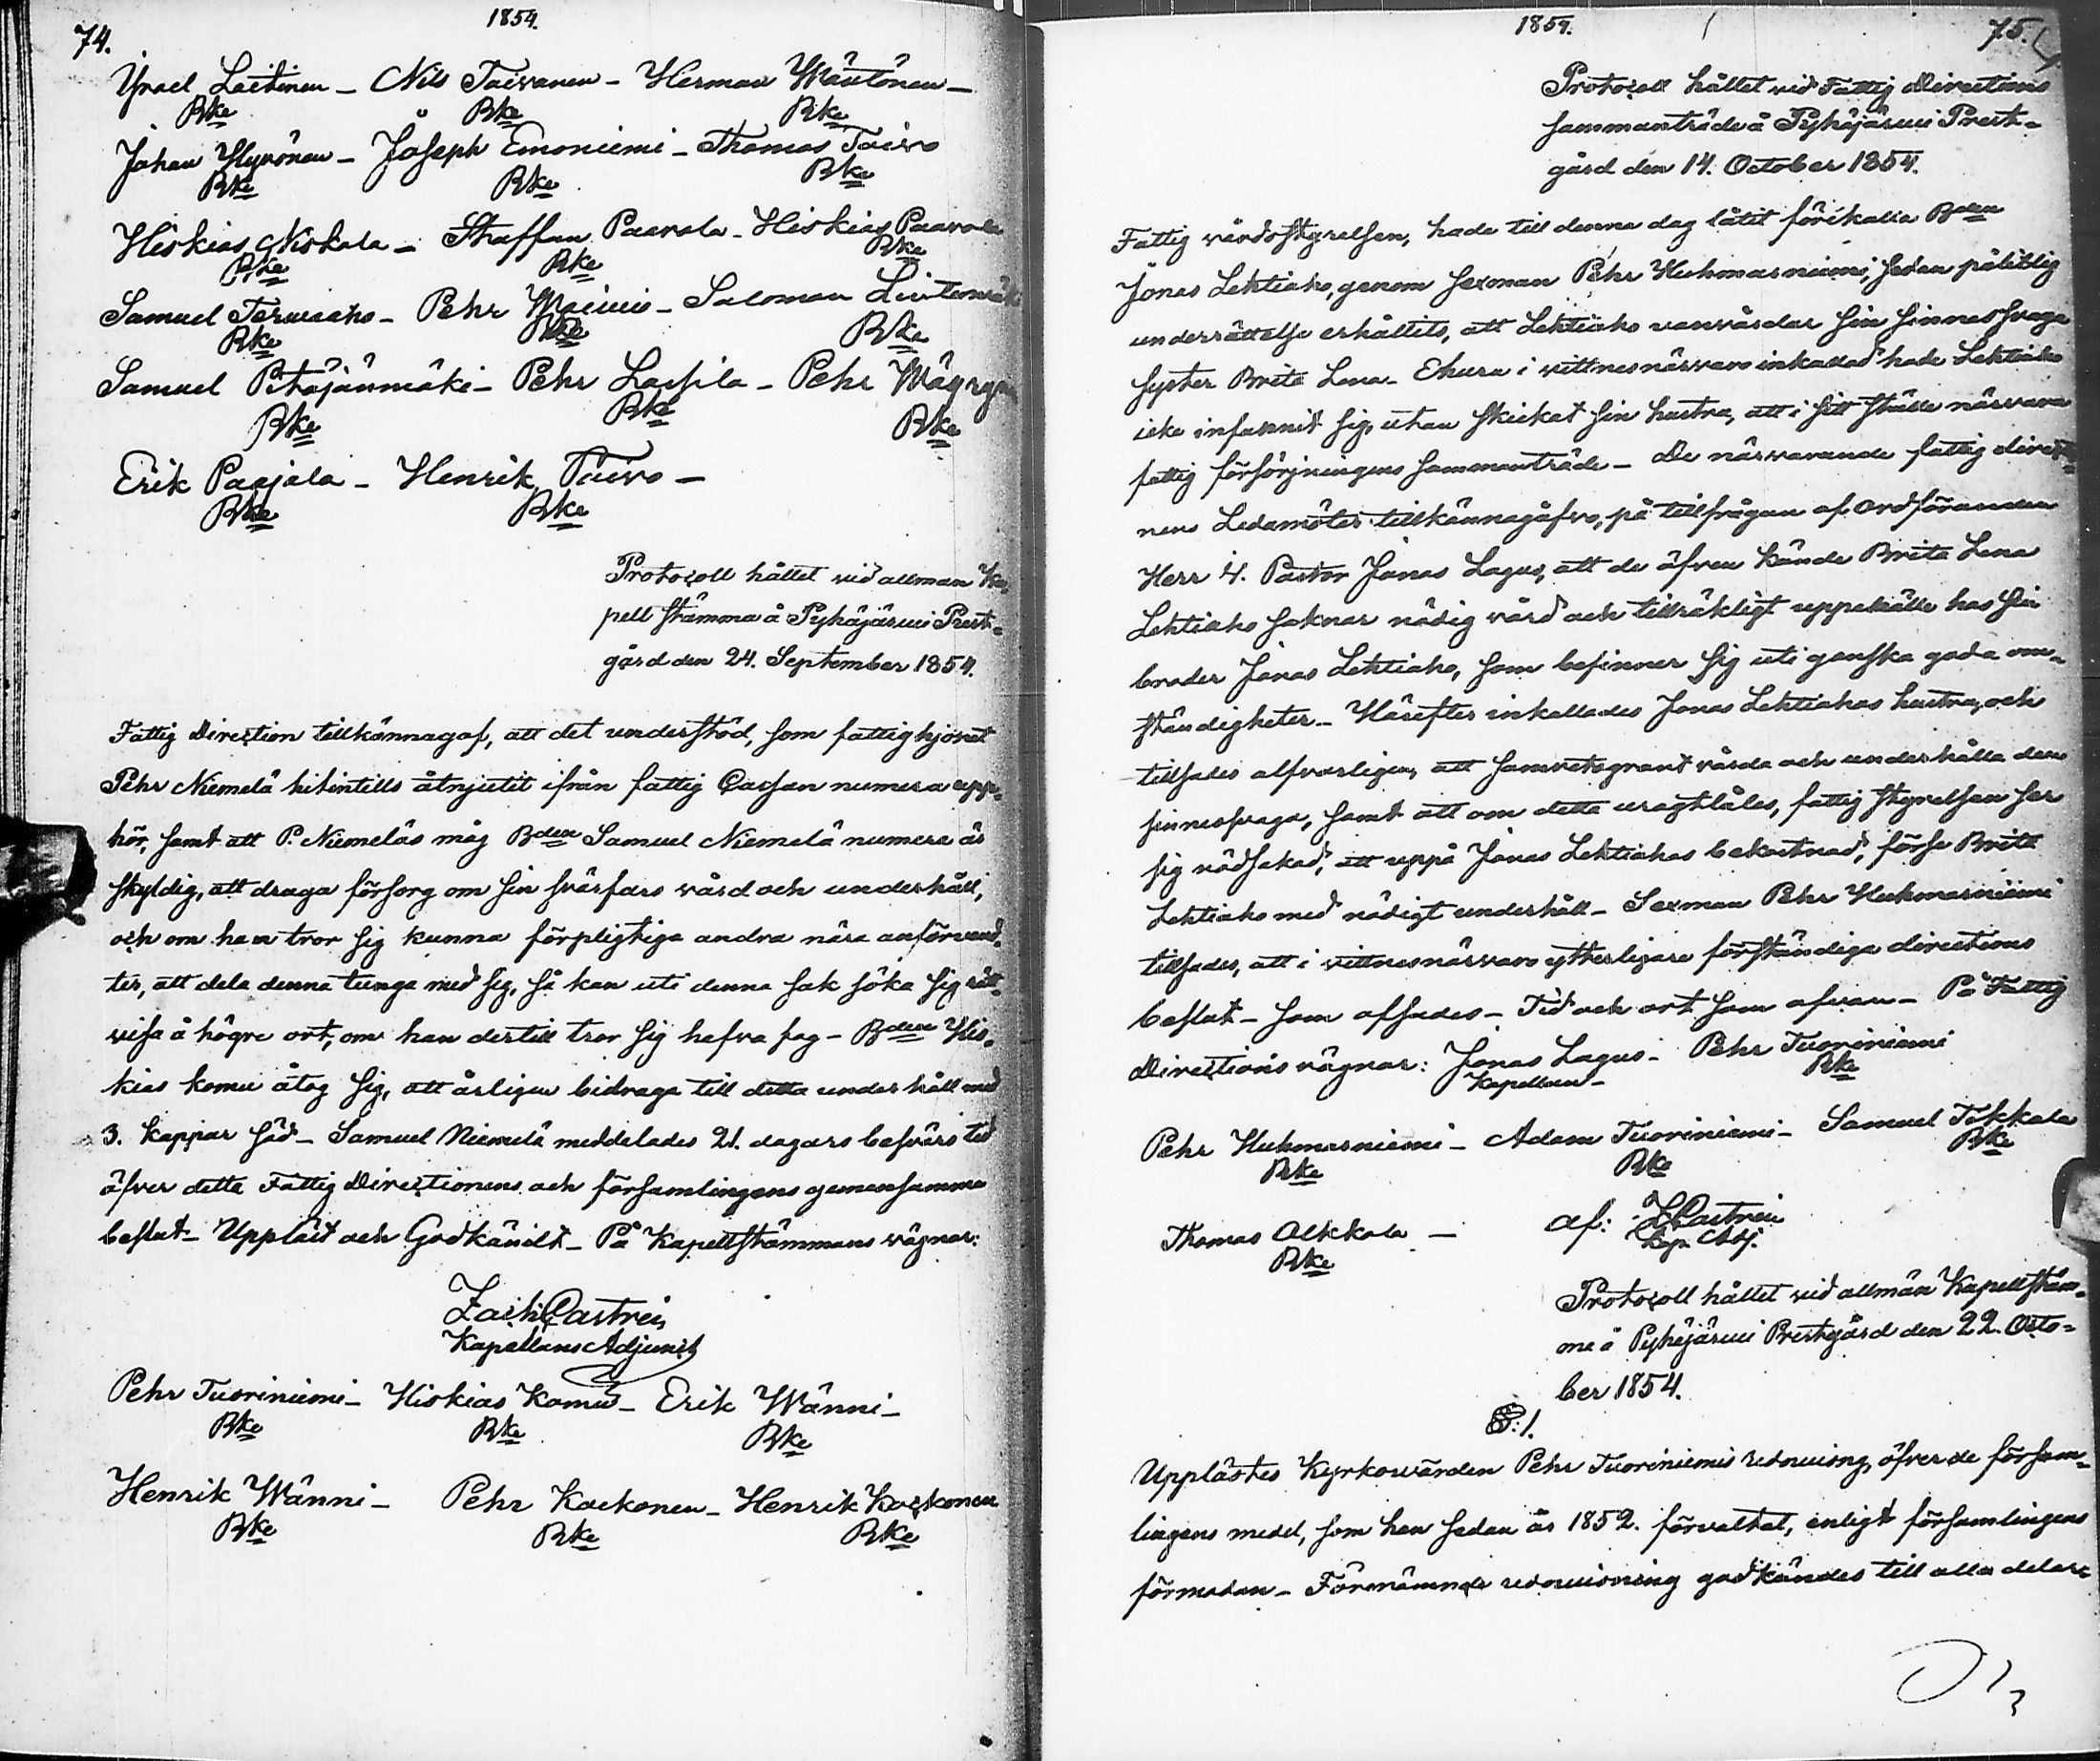 1854.
74.
Ysrael Laitinen - Nils Taivanen - Herman Mäntönen -
Bke Bke Bke
Johan Hyvönen - Joseph Emoniemi - Thomas Toivo
Bke Bke Bke
Hiskias Niskala - Staffan Paavola - Hiskias Paavola
Bke Bke Bke
Samuel Tervaaho - Pehr - Salomon
Bke Bke Bke
Samuel Pitäjänmäki - Pehr Lassila - Pehr
Bke Bke Bke
Erik Paajala - Henrik Toivo -
Bke Bke
Protocoll hållet vid allmän Ka-
pell stämma å Pyhäjärvi Prest-
gård den 24. September 1854.
Fattig Direction tillkännagaf, att det understöd, som fattighjonet
Pehr Niemelä hitintills åtnjutit ifrån fattig Cassan numera upp-
hör, samt att P. Niemeläs måg Bden Samuel Niemelä numera är
skyldig, att draga försorg om sin svärfars vård och underhåll,
och om han tror sig kunna förpligtiga andra nära anförvand-
ter, att dela denna tunga med sig, så kan uti denna sak söka sig rätt-
visa å högre ort, om han dertill tror sig hafva fog - Bden His-
kias Komu åtog sig, att årligen bidraga till detta underhåll med
3. kappar säd - Samuel Niemelä meddelades 21. dagars besvärs tid
öfver detta Fattig Directionens och församlingens gemensamma
beslut - Uppläst och Godkändt - På Kapellstämmans vägnar:
Zach: Castrén
Kapellans Adjunct
Pehr Tuoriniemi - Hiskias Komu - Erik Wänni -
Bke Bke Bke
Henrik Wänni - Pehr Kockonen - Henrik Kockonen
Bke Bke Bke
1854.
75.
Protocoll hållet vid Fattig Directions
sammanträde å Pyhäjärvi Prest-
gård den 14. October 1854.
Fattig vårdsstyrelsen, hade till denna dag låtit förekalla Bden
Jonas Lehtiaho, genom sexman Pehr Huhmarniemi, sedan pålitlig
underrättelse erhållits, att Lehtiaho vanvårdar sin sinnessvaga
syster Brita Lena - Ehuru i vittnesnärvaro inkallad hade Lehtiaho
icke infunnit sig, utan skickat sin hustru, att i sitt ställe närvara
fattig försörjningens sammanträde - De närvarande fattig directio-
nens Ledamöter tillkännagåfvo, på tillfrågan af ordföranden
Herr V. Pastor Jonas Lagus, att de äfven kände Brita Lena
Lehtiaho saknar nödig vård och tillräkligt uppehälle hos sin
broder Jonas Lehtiaho, som befinner sig uti ganska goda om-
ständigheter - Härefter inkallades Jonas Lehtiahos hustru, och
tillsades alfvarligen, att samvetsgrant vårda och underhålla den
sinnessvaga, samt att om detta uragtlåtes, fattig styrelsen ser
sig nödsakad, att uppå Jonas Lehtiahos bekostnad, förse Brita
Lehtiaho med nödigt underhåll - Sexman Pehr Huhmarniemi
tillsades, att i vittnesnärvaro ytterligare förständiga directions
beslut - som afsades - Tid och ort som ofvan - På Fattig
Directions vägnar: Jonas Lagus - Pehr Tuoriniemi
Kapellan - Bke
Pehr Huhmarniemi - Adam Tuoriniemi - Samuel Tikkala
Bke Bke Bke
Thomas Olkkola - af: Z Castrén
Bke Cap. Adj.
Protocoll hållet vid allmän Kapellstäm-
ma å Pyhäjärvi Prestgård den 22. Octo-
ber 1854.
§:1.
Upplästes Kyrkovärden Pehr Tuoriniemis redovisning, öfver de försam-
lingens medel, som han sedan år 1852. förvaltat, enligt församlingens
förmodan - Förenämnde redovisning godkändes till alla delar